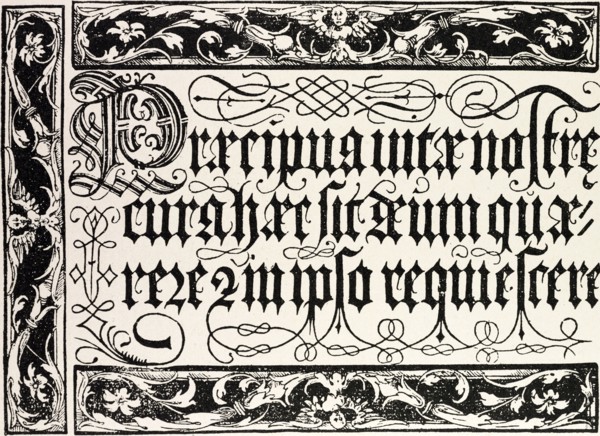 Præcipua uitæ nostrę
cura hæc sit Deum quæ⸗
rere ⁊ in ipso requiescere